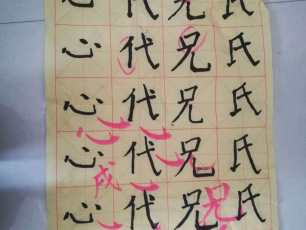 心代兄氏
心代兄氏
心代兄氏
心代兄氏
心代兄氏